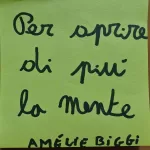 Per aprire
di più
la mente
AMÉLIE BIGGI